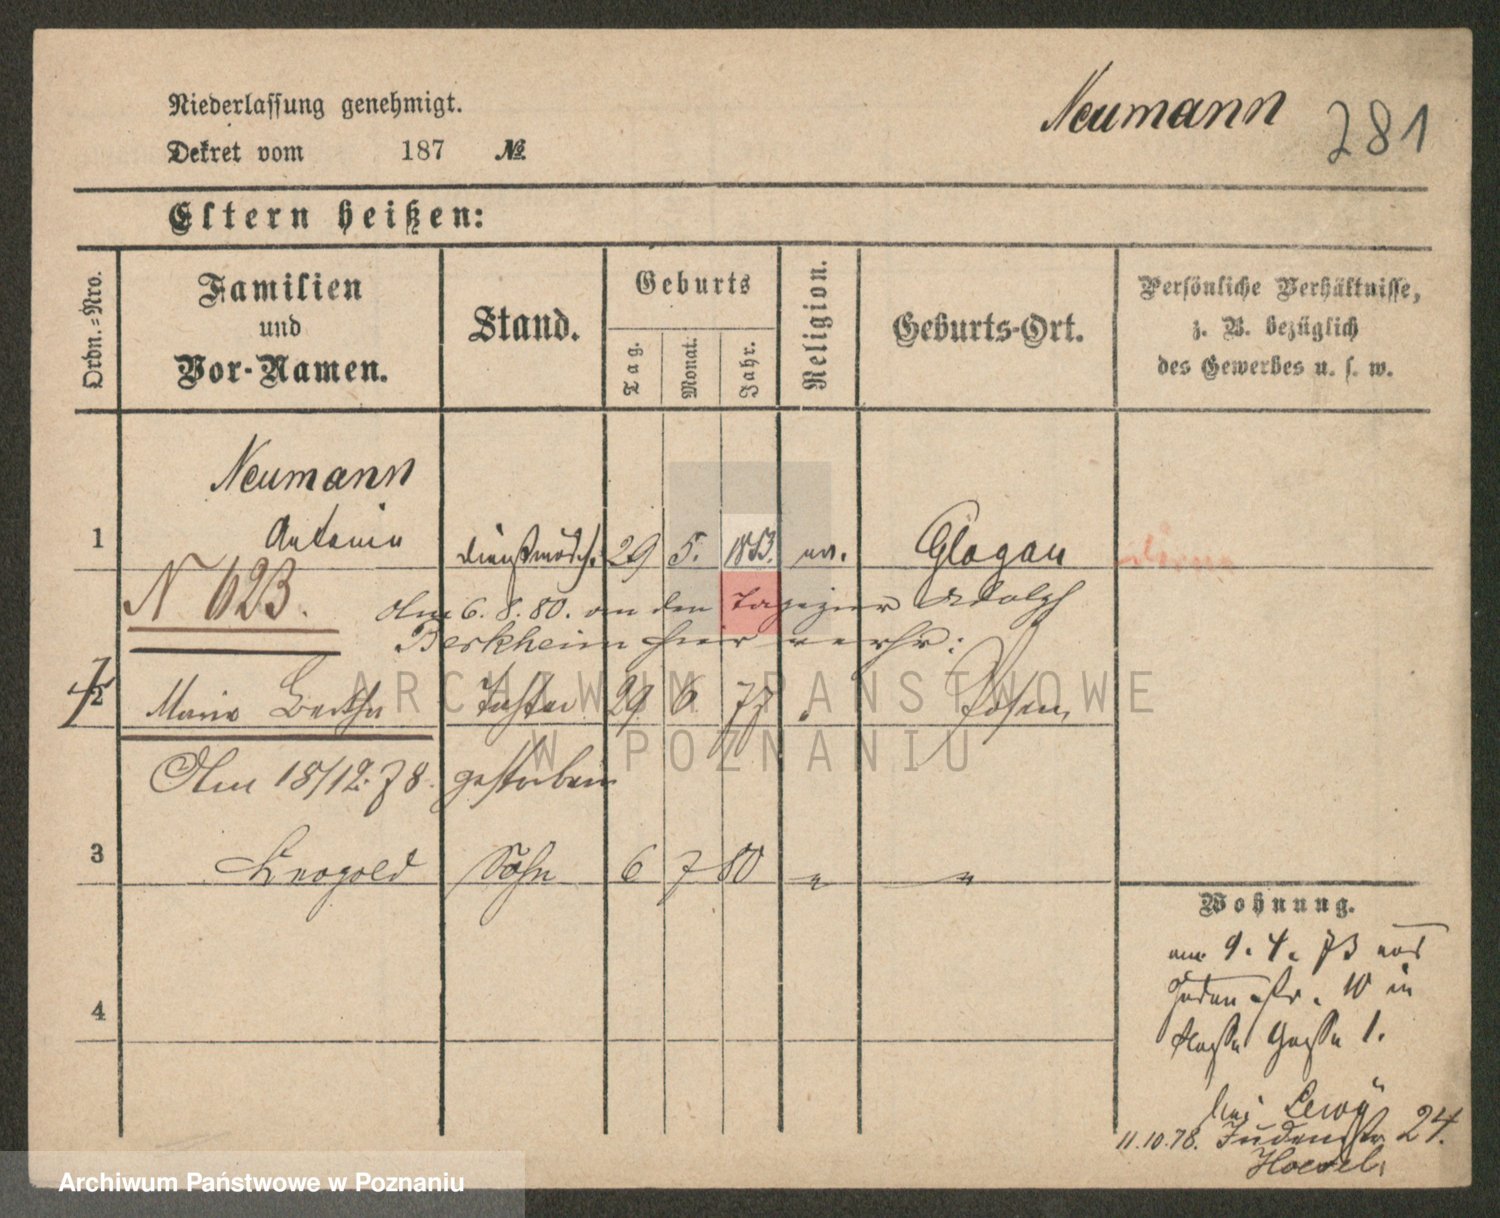 Niederlassung genehmigt.
Neumann 281
Dekret vom 187 №
Eltern heißen:
Ordn.-Nro.
Familien und Vor-Namen.
Stand.
Geburts
Tag.
Monat.
Jahr.
Religion.
Geburts-Ort.
Persönliche Verhältnisse,
z. B. bezüglich
des Gewerbes u. s. w.
Neumann
1 Antonie Dienstmädch. 29 5. 1853. ev. Glogau
N 623.
Am 6. 8. 80. an den Tapezier Adolph
Berkheim hier verh:
2 Marie Bertha Tochter 29 6 77 " Posen
Am 18/12. 78. gestorben
3 Leopold Sohn 6 7 80 " "
Wohnung.
4
am 9. 4. 73 von
Juden-Str. 10 in
Gasse 1.
bei Lewy
11.10.78. Judenstr 24.
ARCHIWUM PAŃSTWOWE
W POZNANIU
Archiwum Państwowe w Poznaniu